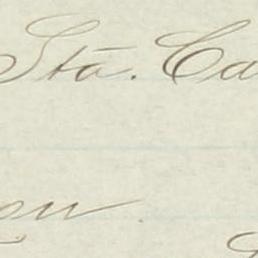 Sta. Ca
on